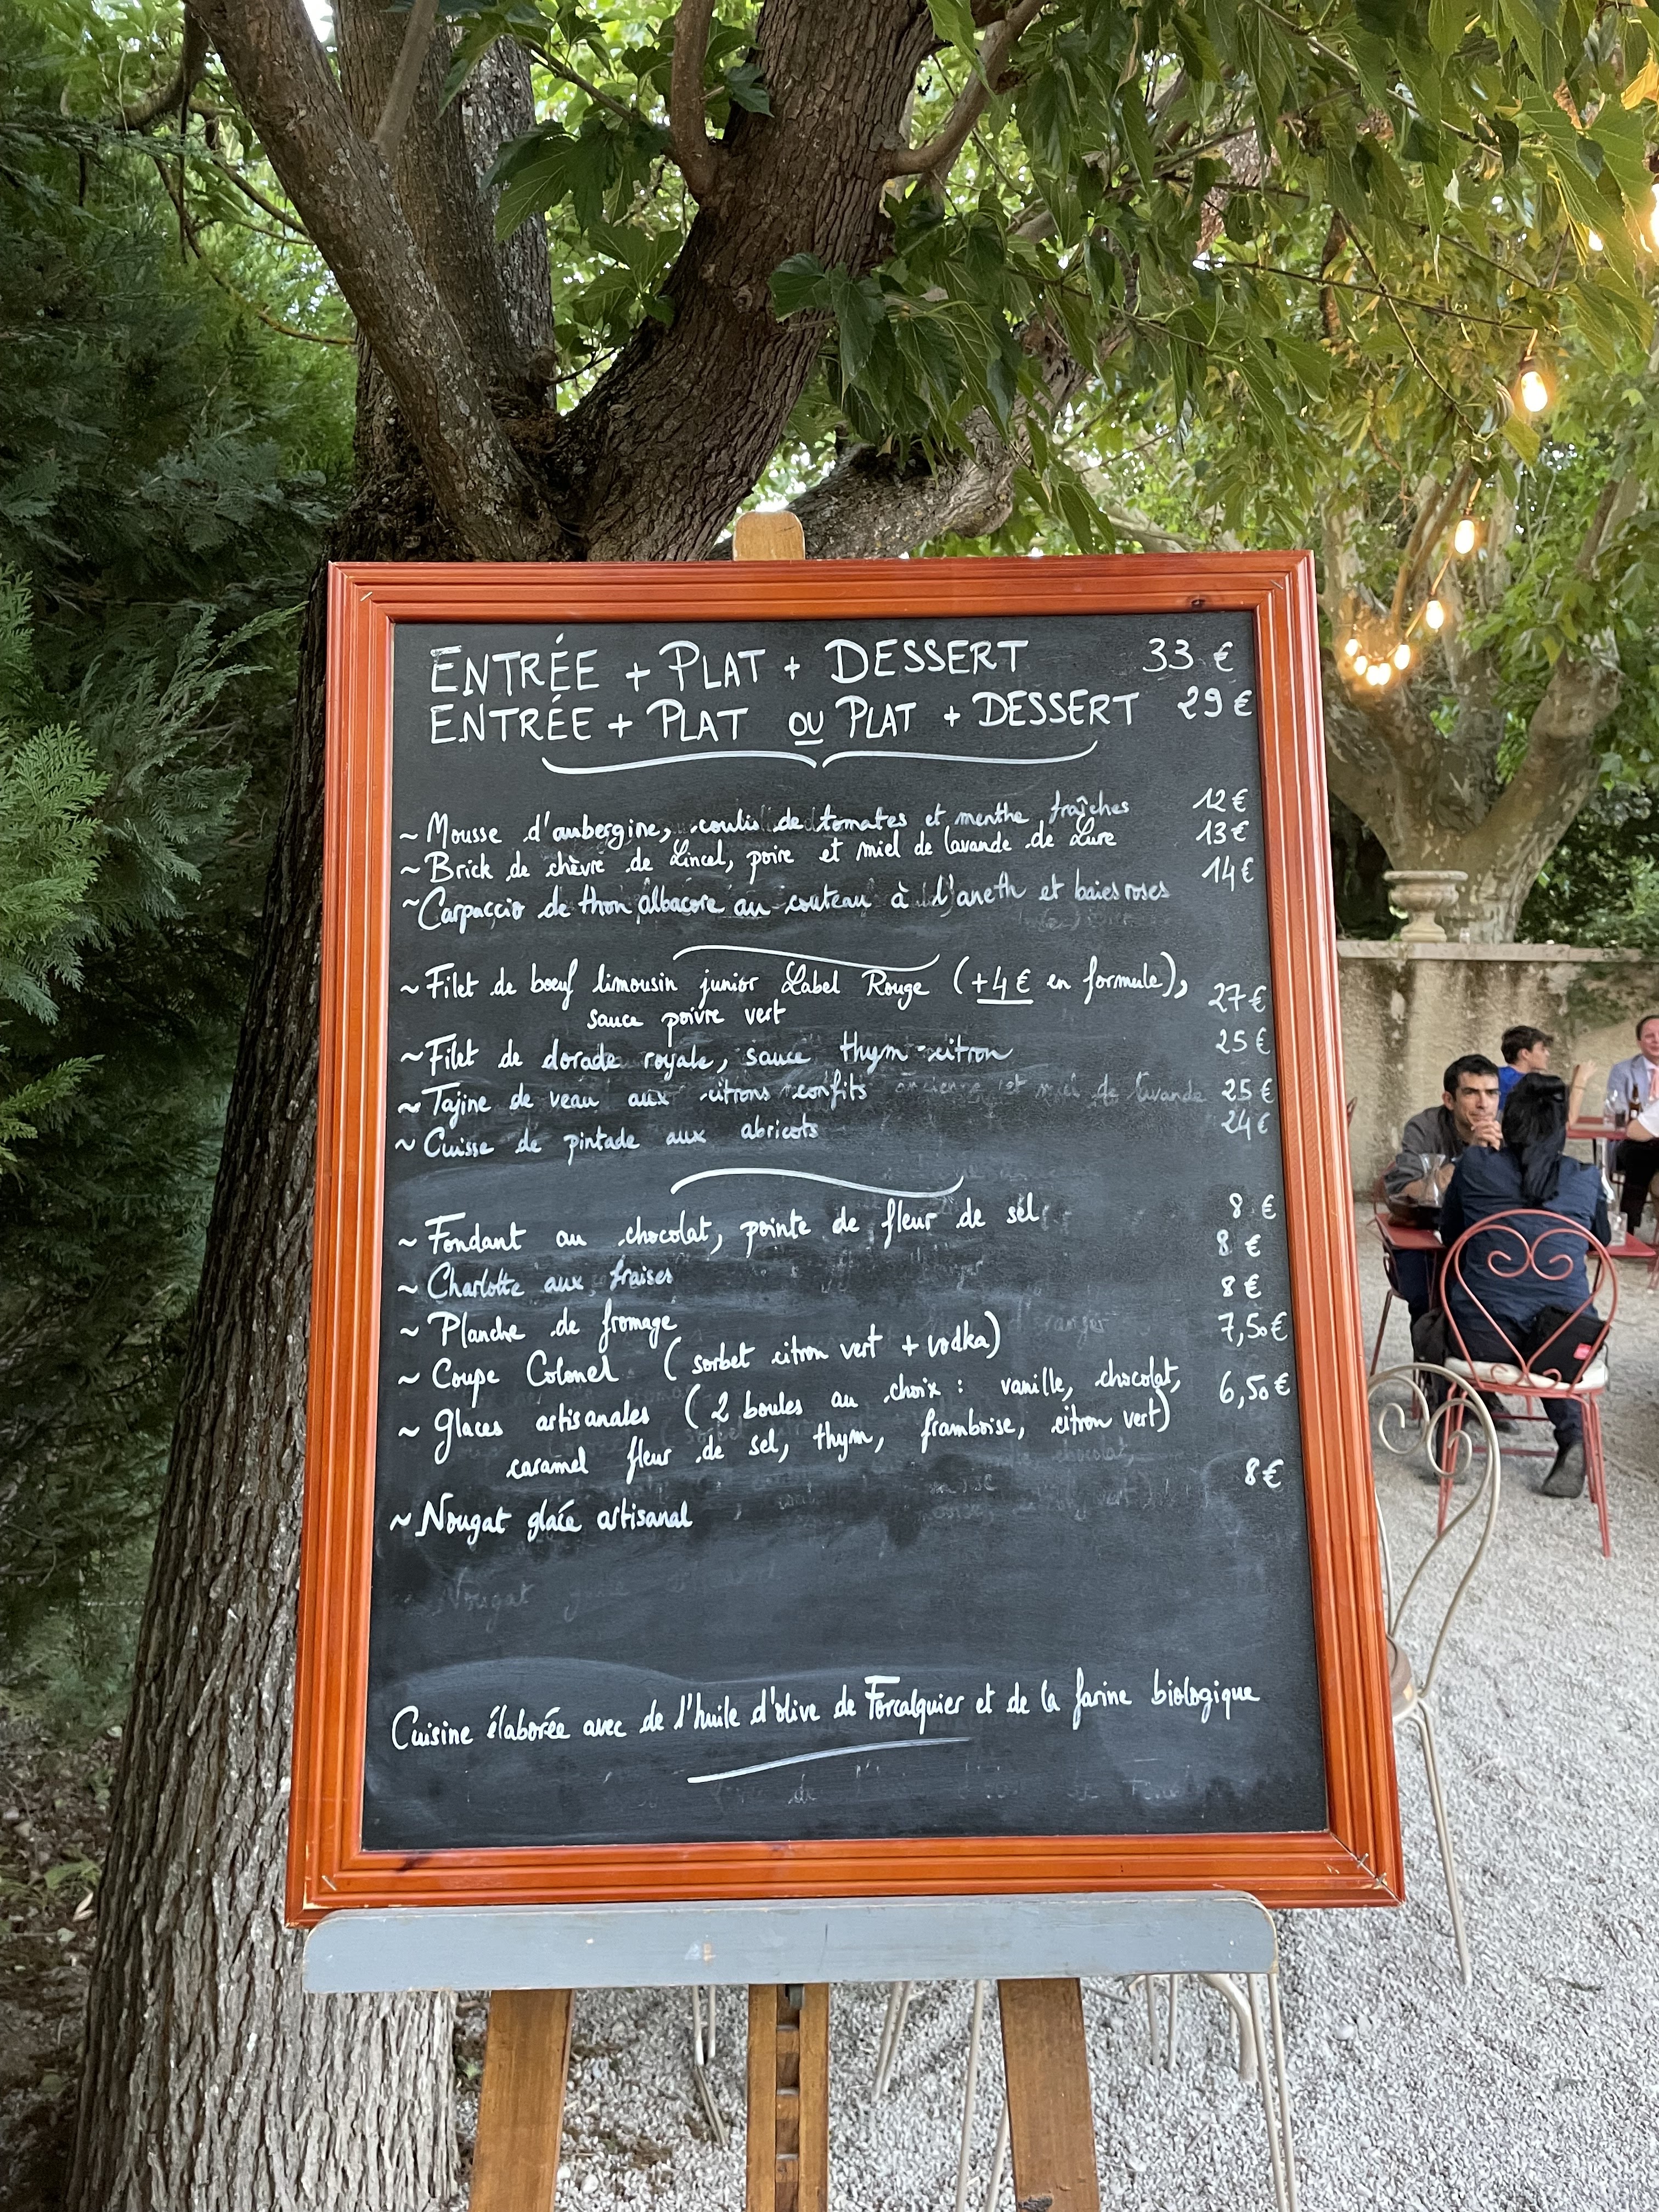 ENTRÉE + PLAT + DESSERT 33 €
ENTRÉE + PLAT OU PLAT + DESSERT 29 €
~ Mousse d'aubergine, coulis de tomates et menthe fraîches 12 €
~ Brick de chèvre de Lincel, poire et miel de lavande de Lure 13 €
~ Carpaccio de thon albacore au couteau à l'aneth et baies roses 14 €
~ Filet de bœuf limousin junior Label Rouge (+4 € en formule),
sauce poivre vert 27 €
~ Filet de dorade royale, sauce thym-citron 25 €
~ Tajine de veau aux citrons confits 25 €
~ Cuisse de pintade aux abricots 24 €
~ Fondant au chocolat, pointe de fleur de sel 8 €
~ Charlotte aux fraises 8 €
~ Planche de fromage 8 €
~ Coupe Colonel (sorbet citron vert + vodka) 7,50 €
~ Glaces artisanales (2 boules au choix : vanille, chocolat, 6,50 €
caramel fleur de sel, thym, framboise, citron vert)
~ Nougat glacé artisanal 8 €
Cuisine élaborée avec de l'huile d'olive de Forcalquier et de la farine biologique